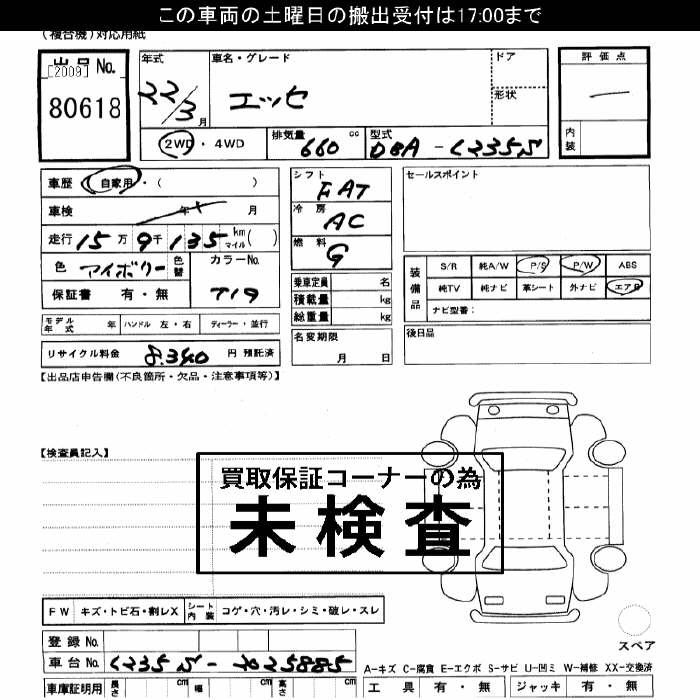 この車両の土曜日の搬出受付は17:00まで
(複合機)対応用紙
出品 No.
[2009]
80618
年式 22/3 月
車名・グレード エッセ
ドア
形状
評価点
内装
2WD・4WD
排気量 660 cc
型式 DBA - L235S
車歴 自家用・( )
車検 年 月
走行 15万9千135 km マイル( )
色 アイボリー 色替
カラーNo. T19
保証書 有・無
シフト FAT
冷房 AC
燃料 G
乗車定員 名
積載量 kg
総重量 kg
セールスポイント
装備品
S/R 純A/W P/S P/W ABS
純TV 純ナビ 革シート 外ナビ エアB
ナビ型番:
モデル年式 年 ハンドル 左・右 ディーラー・並行
名変期限
月 日
後日品
リサイクル料金 8.340 円 預託済
【出品店申告欄(不良箇所・欠品・注意事項等)】
【検査員記入】
買取保証コーナーの為
未検査
FW キズ・トビ石・割レX シート内装 コゲ・穴・汚レ・シミ・破レ・スレ
スペア
登録 No.
車台 No. L235S-2025885
A-キズ C-腐食 E-エクボ S-サビ U-凹ミ W-補修 XX-交換済
車庫証明用 長さ cm 幅 cm 高さ cm
工具 有・無 ジャッキ 有・無